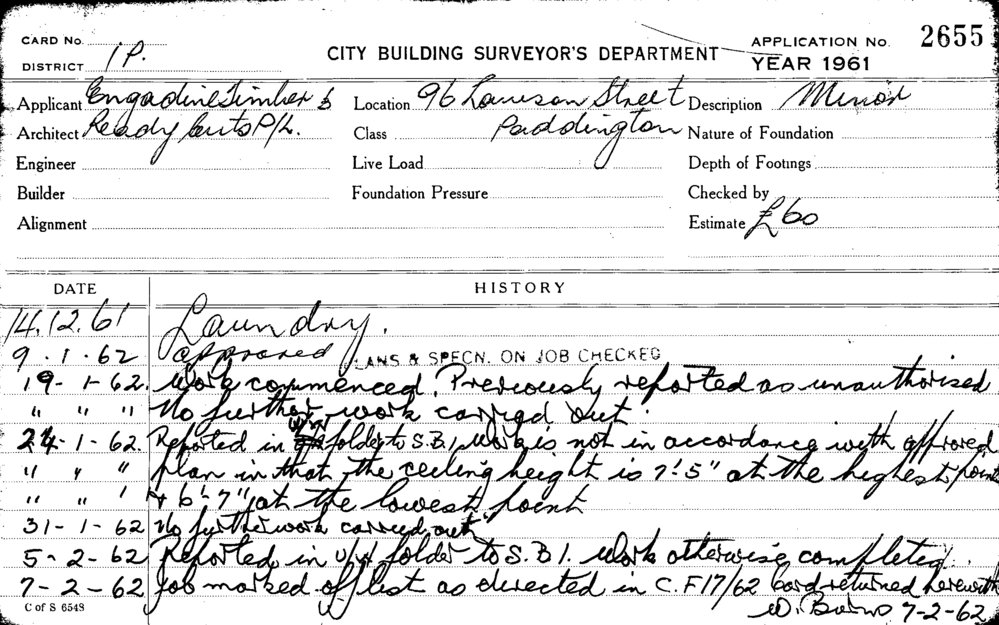 CARD No. APPLICATION No. 2655
DISTRICT 1P. CITY BUILDING SURVEYOR'S DEPARTMENT YEAR 1961
Applicant Engadine Timber & Location 96 Lawson Street Description Minor
Architect Ready Cuts P/L. Class Paddington Nature of Foundation
Engineer Live Load Depth of Footings
Builder Foundation Pressure Checked by
Alignment Estimate £60
DATE HISTORY
14.12.61 Laundry.
9.1.62 approved PLANS & SPECN. ON JOB CHECKED
19-1-62. Work commenced. Previously reported as unauthorised
" " " No further work carried out.
24-1-62. Reported in u/w folder to S.B.1. Work is not in accordance with approved
" " " plan in that the ceiling height is 7'-5" at the highest point
" " " & 6'-7" at the lowest point
31-1-62 No further work carried out
5-2-62 Reported in u/w folder to S.B.1. Work otherwise completed
7-2-62 Job marked off list as directed in C.F17/62 Card returned herewith
C of S 6548 W. 7-2-62